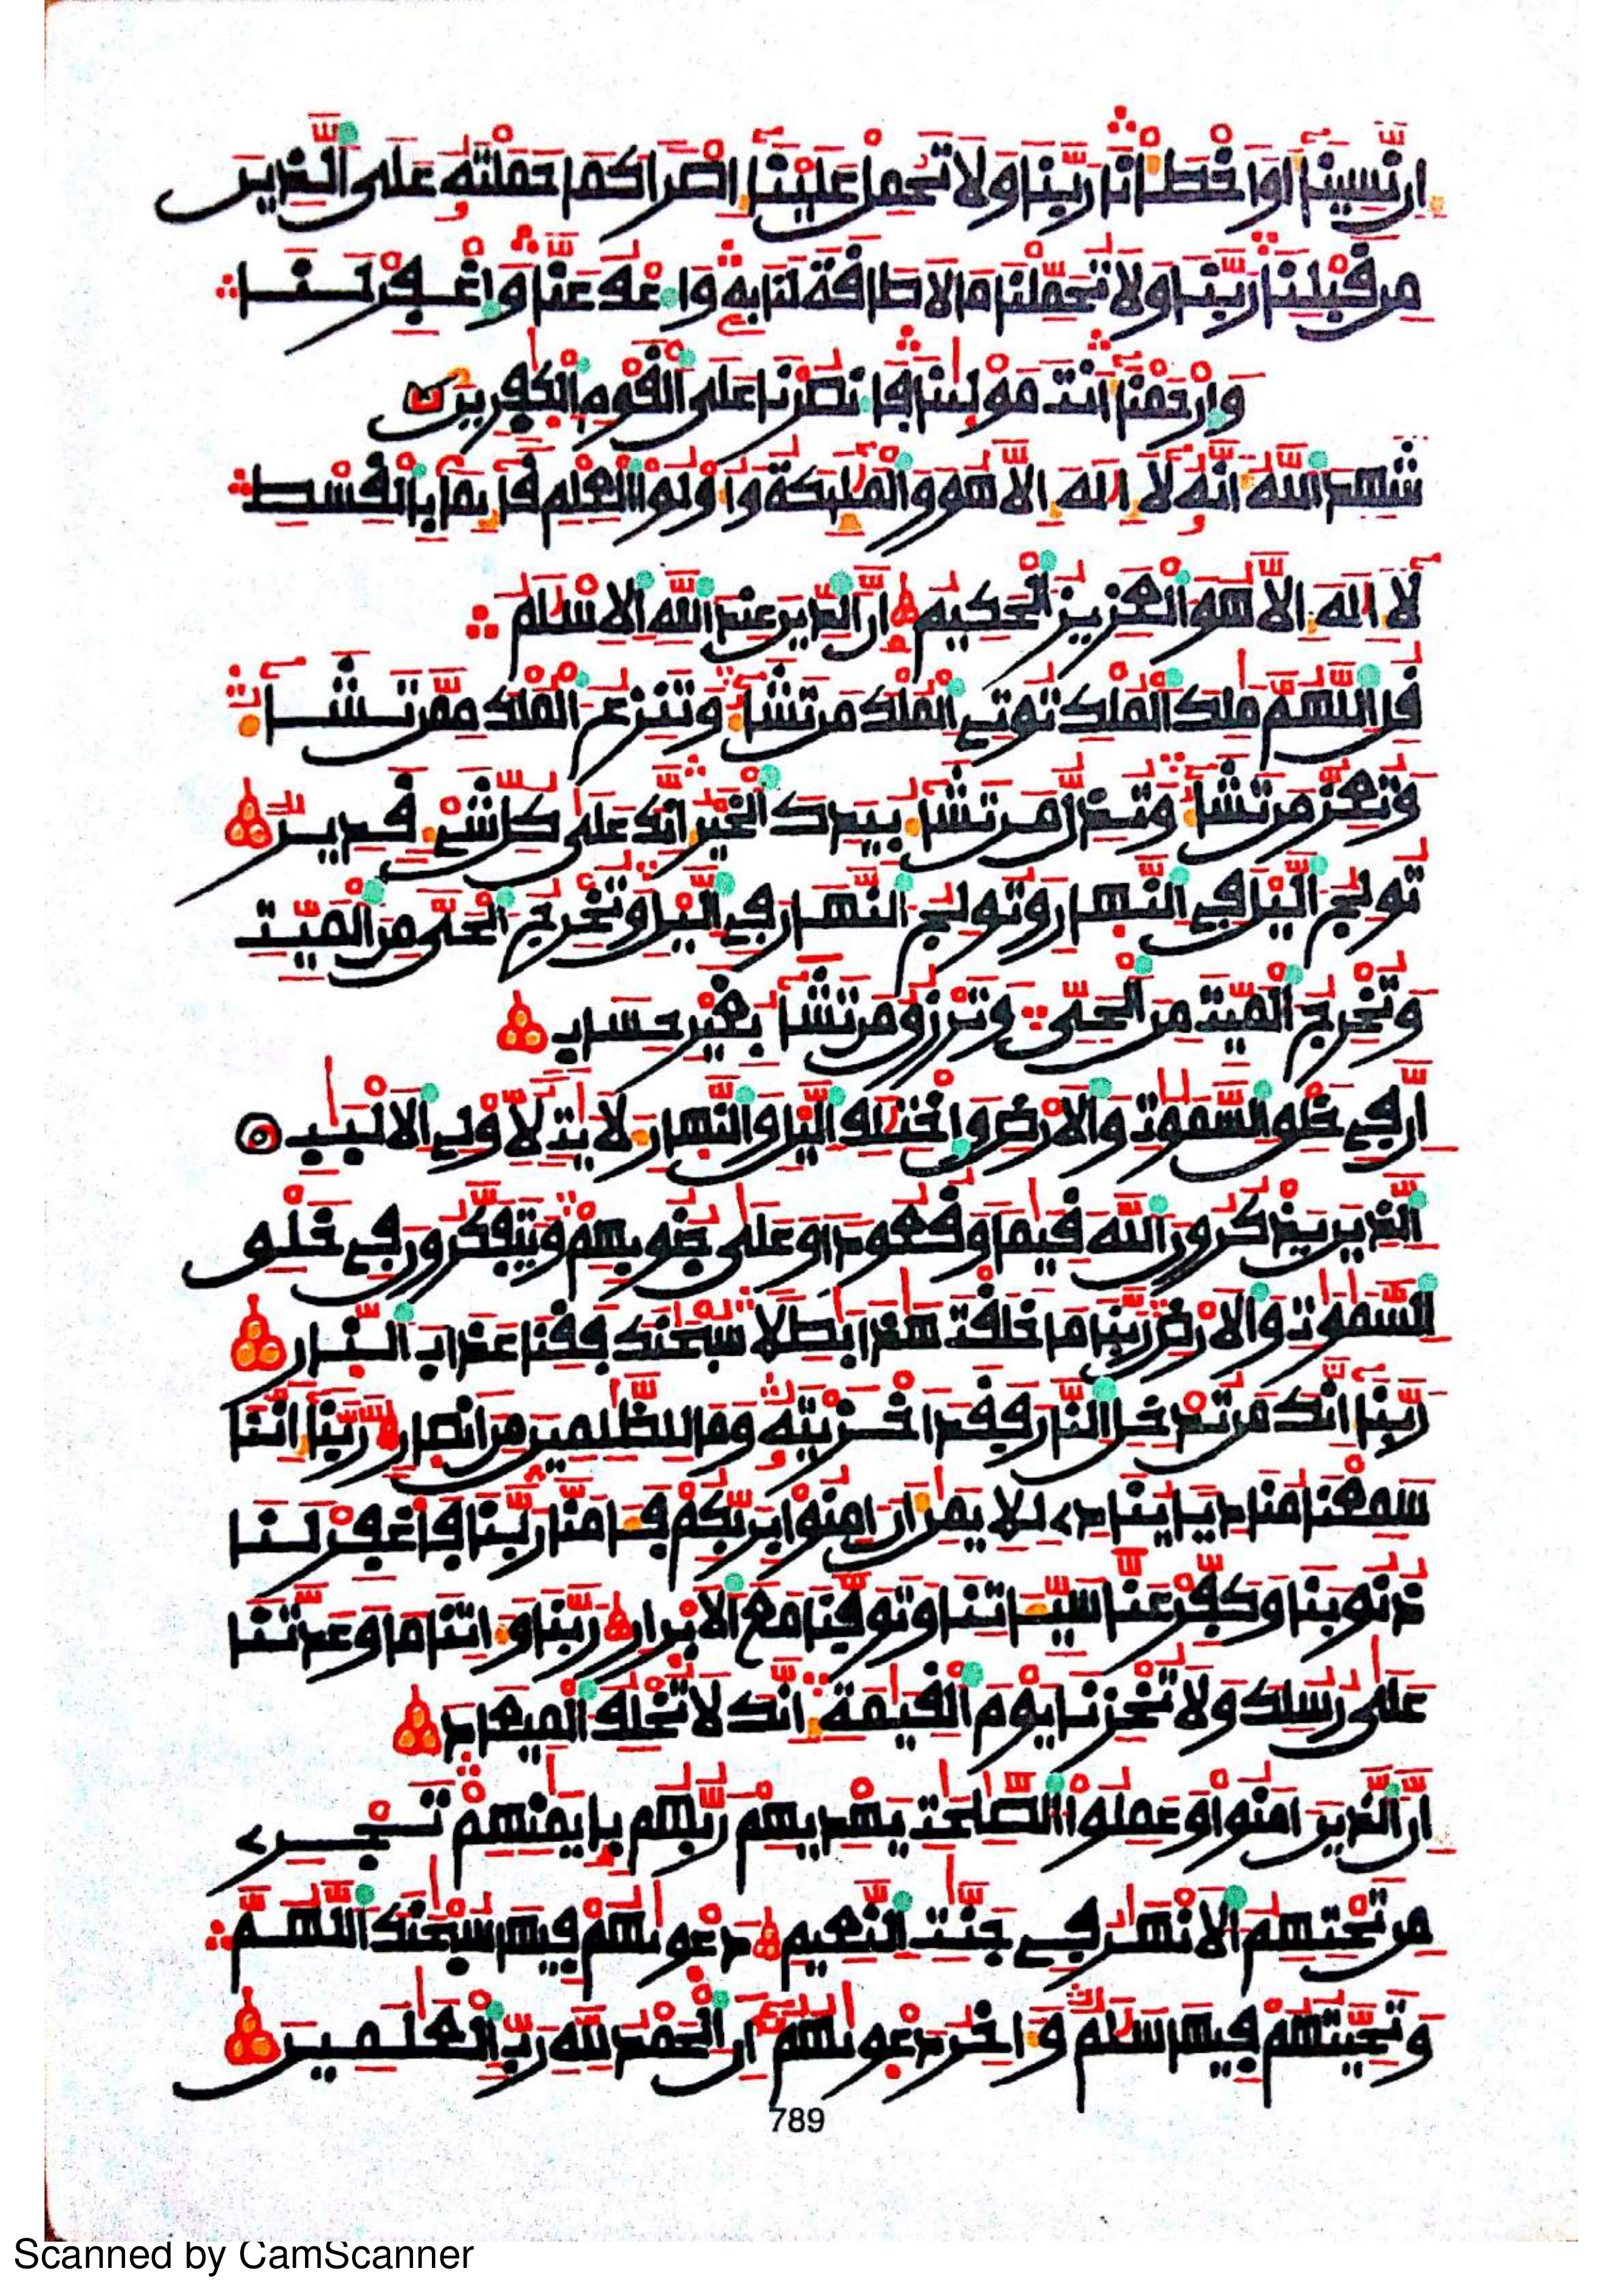 إِن نَّسِينَا أَوَ اخْطَأْنَا رَبَّنَا وَلَا تَحْمِلْ عَلَيْنَا إِصْرًا كَمَا حَمَلْتَهُ عَلَى الَّذِينَ
مِن قَبْلِنَا رَبَّنَا وَلَا تُحَمِّلْنَا مَا لَا طَاقَةَ لَنَا بِهِ وَاعْفُ عَنَّا وَاغْفِرْ لَنَا
وَارْحَمْنَا أَنتَ مَوْلٰينَا فَانصُرْنَا عَلَى الْقَوْمِ الْكٰفِرِينَ
شَهِدَ اللَّهُ أَنَّهُ لَا إِلٰهَ إِلَّا هُوَ وَالْمَلٰئِكَةُ وَأُوْلُوا الْعِلْمِ قَآئِمًا بِالْقِسْطِ
لَا إِلٰهَ إِلَّا هُوَ الْعَزِيزُ الْحَكِيمُ إِنَّ الدِّينَ عِندَ اللَّهِ الْإِسْلٰمُ
قُلِ اللَّهُمَّ مٰلِكَ الْمُلْكِ تُوتِي الْمُلْكَ مَن تَشَآءُ وَتَنزِعُ الْمُلْكَ مِمَّن تَشَآءُ
وَتُعِزُّ مَن تَشَآءُ وَتُذِلُّ مَن تَشَآءُ بِيَدِكَ الْخَيْرُ إِنَّكَ عَلَىٰ كُلِّ شَيْءٍ قَدِيرٌ
تُولِجُ الَّيْلَ فِي النَّهَارِ وَتُولِجُ النَّهَارَ فِي الَّيْلِ وَتُخْرِجُ الْحَيَّ مِنَ الْمَيِّتِ
وَتُخْرِجُ الْمَيِّتَ مِنَ الْحَيِّ وَتَرْزُقُ مَن تَشَآءُ بِغَيْرِ حِسَابٍ
إِنَّ فِي خَلْقِ السَّمٰوٰتِ وَالْأَرْضِ وَاخْتِلٰفِ الَّيْلِ وَالنَّهَارِ لَأٓيٰتٍ لِّأُوْلِي الْأَلْبٰبِ
الَّذِينَ يَذْكُرُونَ اللَّهَ قِيٰمًا وَقُعُودًا وَعَلَىٰ جُنُوبِهِمْ وَيَتَفَكَّرُونَ فِي خَلْقِ
السَّمٰوٰتِ وَالْأَرْضِ رَبَّنَا مَا خَلَقْتَ هٰذَا بٰطِلًا سُبْحٰنَكَ فَقِنَا عَذَابَ النَّارِ
رَبَّنَا إِنَّكَ مَن تُدْخِلِ النَّارَ فَقَدْ أَخْزَيْتَهُ وَمَا لِلظّٰلِمِينَ مِنْ أَنصَارٍ رَّبَّنَا إِنَّنَا
سَمِعْنَا مُنَادِيًا يُنَادِي لِلْإِيمٰنِ أَنْ ءَامِنُوا بِرَبِّكُمْ فَـَٔامَنَّا رَبَّنَا فَاغْفِرْ لَنَا
ذُنُوبَنَا وَكَفِّرْ عَنَّا سَيِّـَٔاتِنَا وَتَوَفَّنَا مَعَ الْأَبْرَارِ رَبَّنَا وَءَاتِنَا مَا وَعَدتَّنَا
عَلَىٰ رُسُلِكَ وَلَا تُخْزِنَا يَوْمَ الْقِيٰمَةِ إِنَّكَ لَا تُخْلِفُ الْمِيعَادَ
إِنَّ الَّذِينَ ءَامَنُوا وَعَمِلُوا الصّٰلِحٰتِ يَهْدِيهِمْ رَبُّهُم بِإِيمٰنِهِمْ تَجْرِي
مِن تَحْتِهِمُ الْأَنْهٰرُ فِي جَنّٰتِ النَّعِيمِ دَعْوٰيهُمْ فِيهَا سُبْحٰنَكَ اللَّهُمَّ
وَتَحِيَّتُهُمْ فِيهَا سَلٰمٌ وَءَاخِرُ دَعْوٰيهُمْ أَنِ الْحَمْدُ لِلَّهِ رَبِّ الْعٰلَمِينَ
789
Scanned by CamScanner